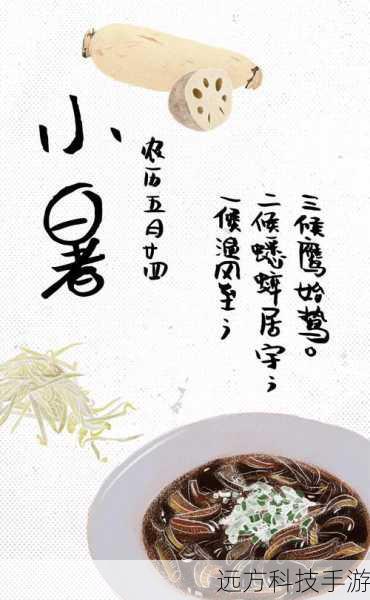 小暑
农历五月廿四
一候温风至；
二候蟋蟀居宇；
三候鹰始鸷。
远方科技手游